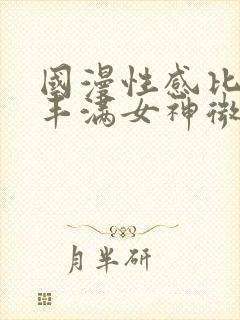 國漫性感比
丰满女神微
月半研